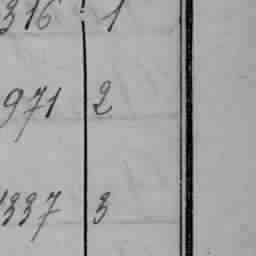 316 1
971 2
1337 3